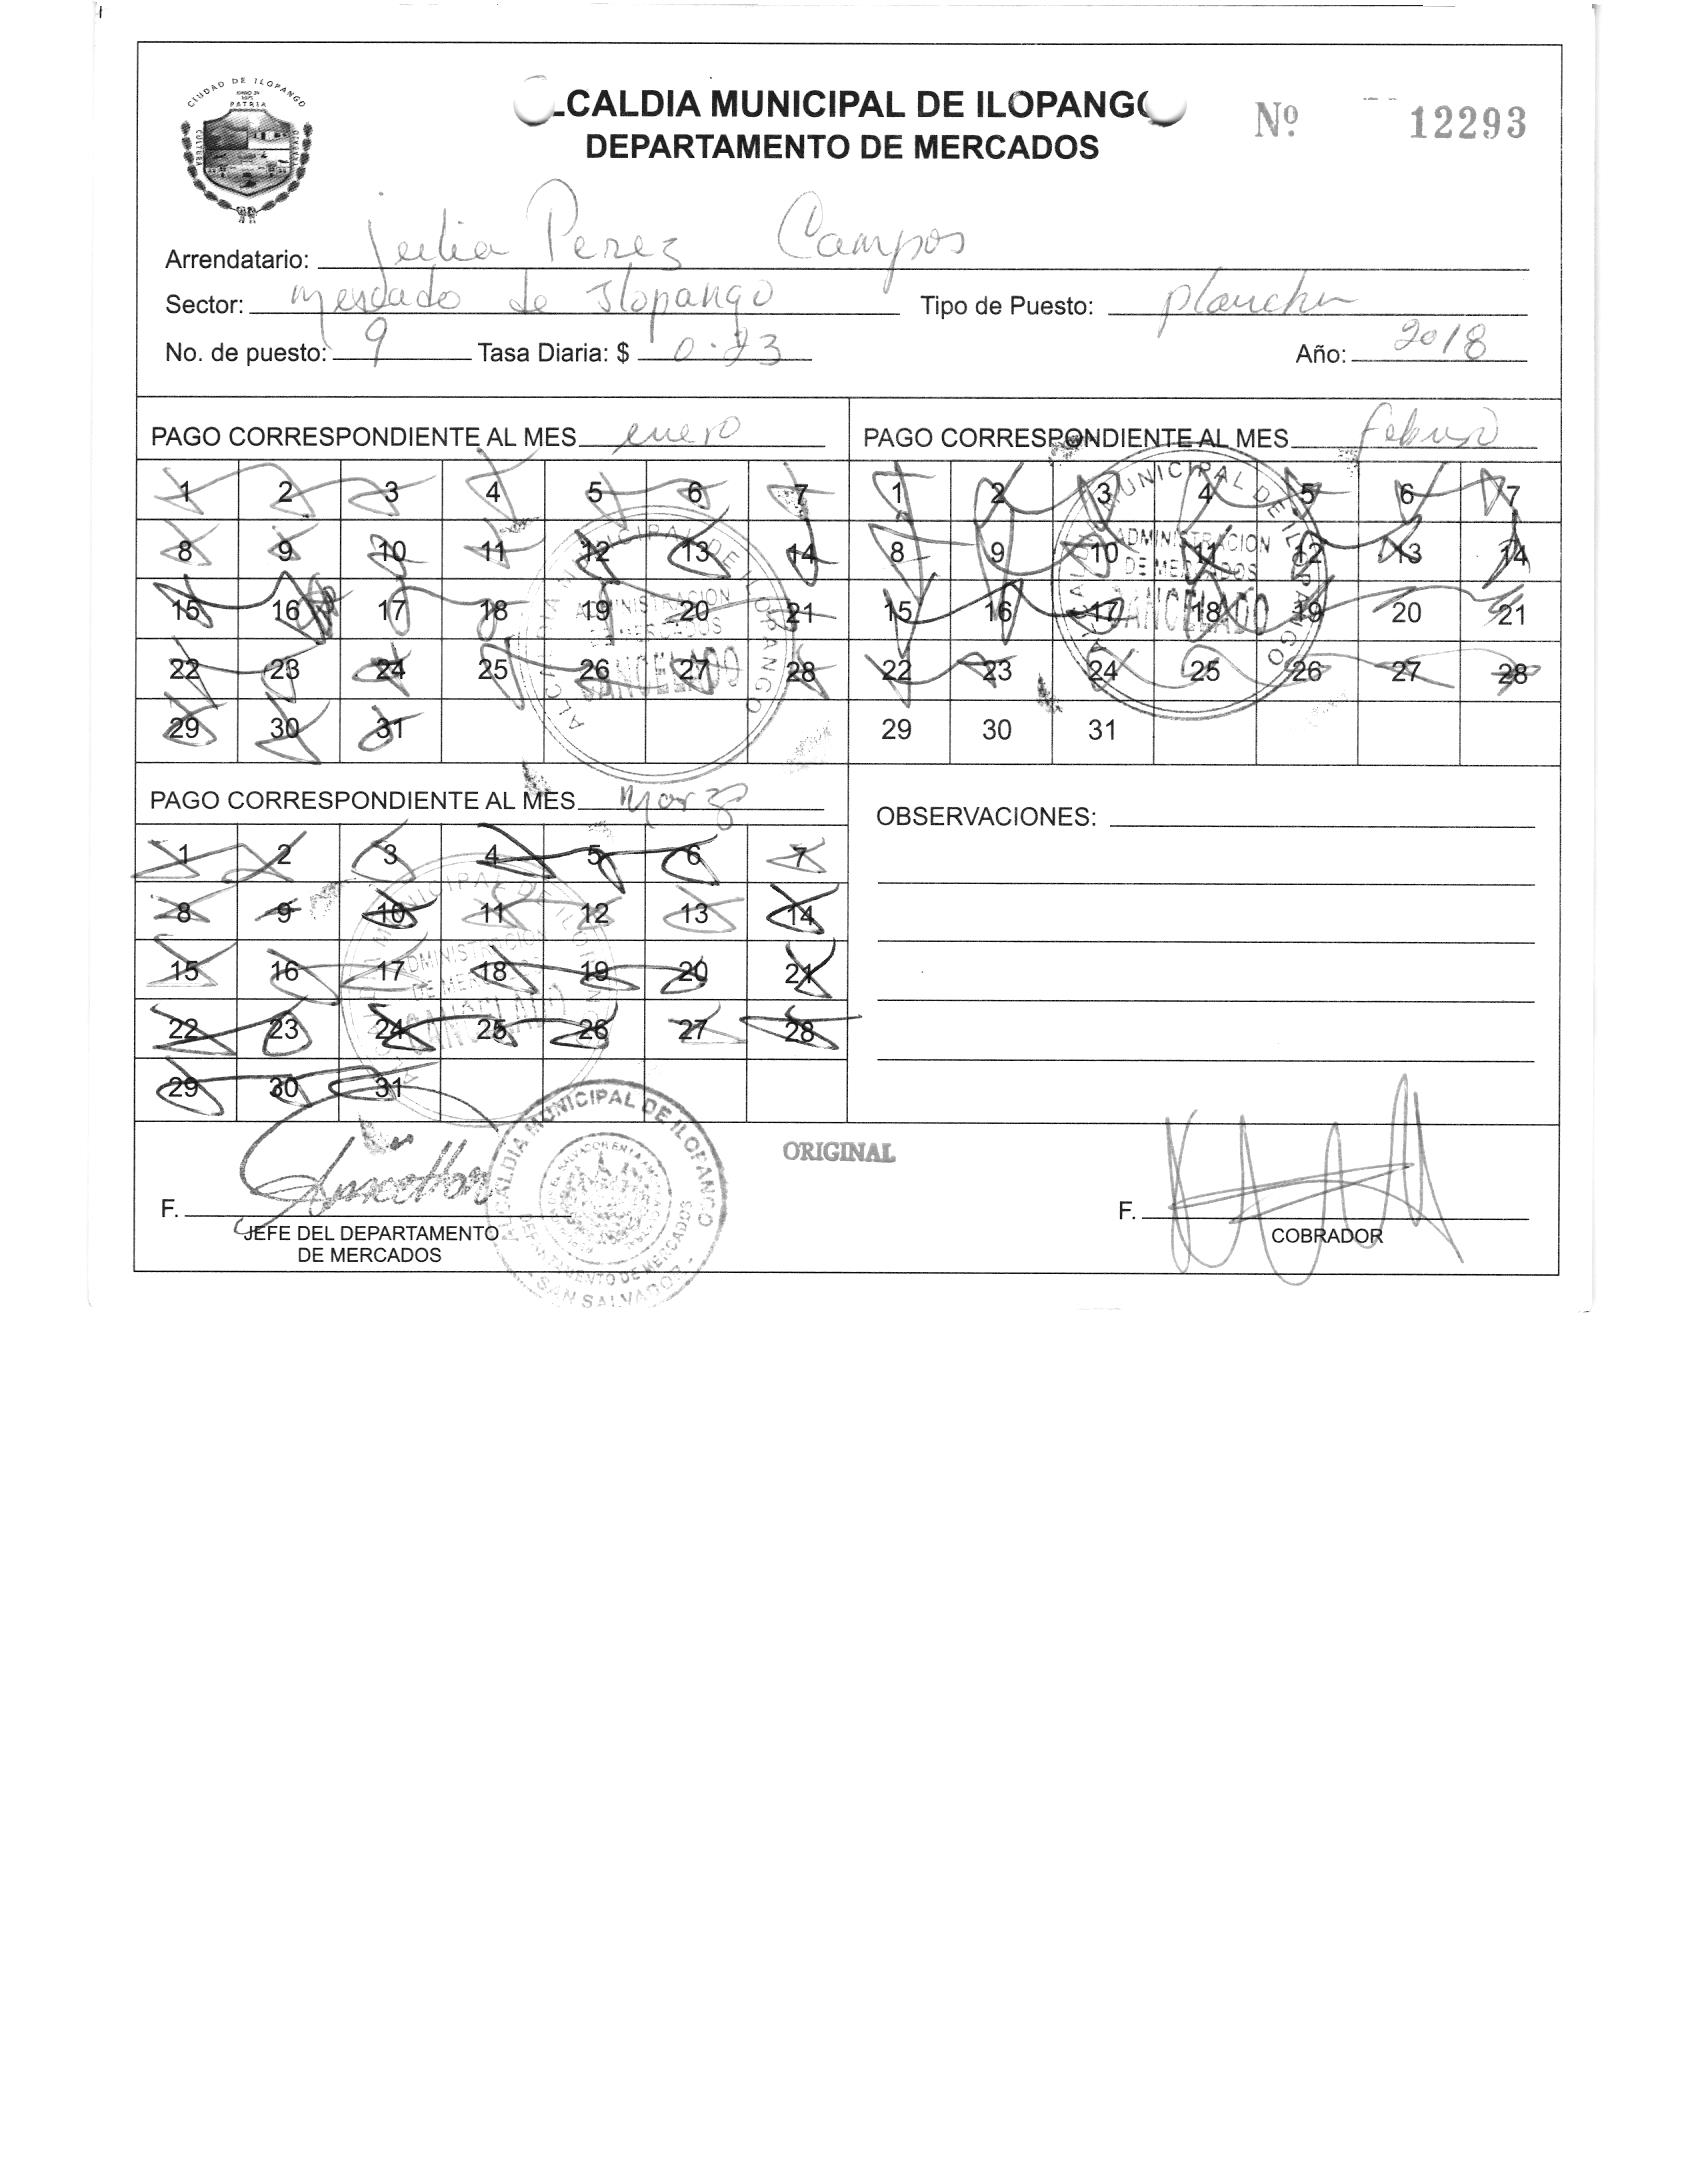 CIUDAD DE ILOPANGO
PATRIA
CULTURA
LCALDIA MUNICIPAL DE ILOPANGO
DEPARTAMENTO DE MERCADOS
Nº 12293
Arrendatario: julia Perez Campos
Sector: mercado de Ilopango Tipo de Puesto: plancha
No. de puesto: 9 Tasa Diaria: $ 0.23 Año: 2018
PAGO CORRESPONDIENTE AL MES enero
1 2 3 4 5 6 7
8 9 10 11 12 13 14
15 16 17 18 19 20 21
22 23 24 25 26 27 28
29 30 31
ALCALDIA MUNICIPAL DE ILOPANGO
ADMINISTRACION
DE MERCADOS
CANCELADO
PAGO CORRESPONDIENTE AL MES febrero
1 2 3 4 5 6 7
8 9 10 11 12 13 14
15 16 17 18 19 20 21
22 23 24 25 26 27 28
29 30 31
ALCALDIA MUNICIPAL DE ILOPANGO
ADMINISTRACION
DE MERCADOS
CANCELADO
PAGO CORRESPONDIENTE AL MES Marzo
1 2 3 4 5 6 7
8 9 10 11 12 13 14
15 16 17 18 19 20 21
22 23 24 25 26 27 28
29 30 31
ALCALDIA MUNICIPAL DE ILOPANGO
ADMINISTRACION
DE MERCADOS
CANCELADO
OBSERVACIONES:
ORIGINAL
F.
JEFE DEL DEPARTAMENTO
DE MERCADOS
ALCALDIA MUNICIPAL DE ILOPANGO
DEPARTAMENTO DE MERCADOS
SAN SALVADOR
F.
COBRADOR